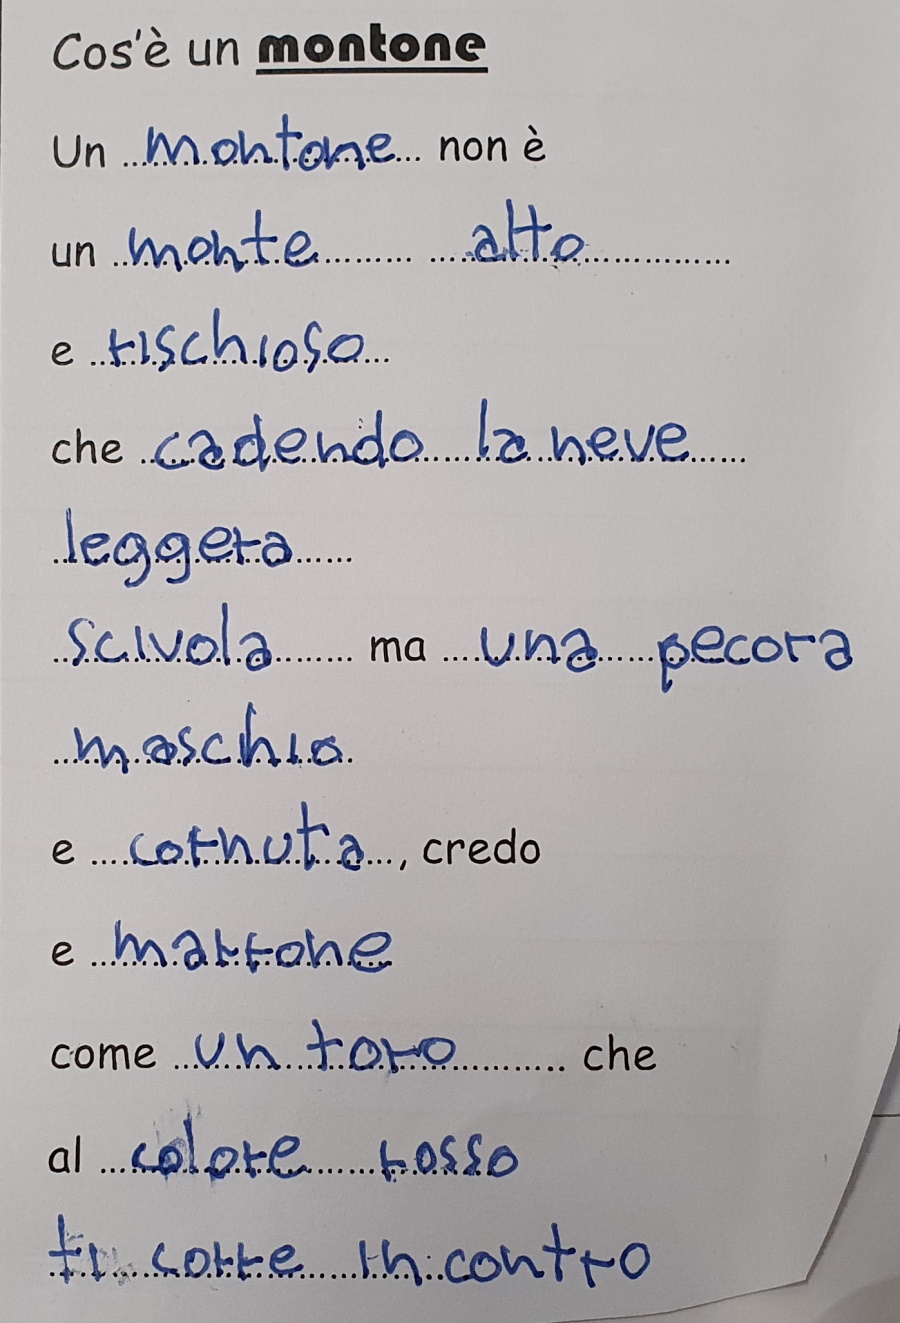 Cos'è un montone
Un montone non è
un monte alto
e rischioso
che cadendo la neve
leggera
scivola ma una pecora
maschio
e cornuta, credo
e marrone
come un toro che
al colore rosso
ti corre incontro